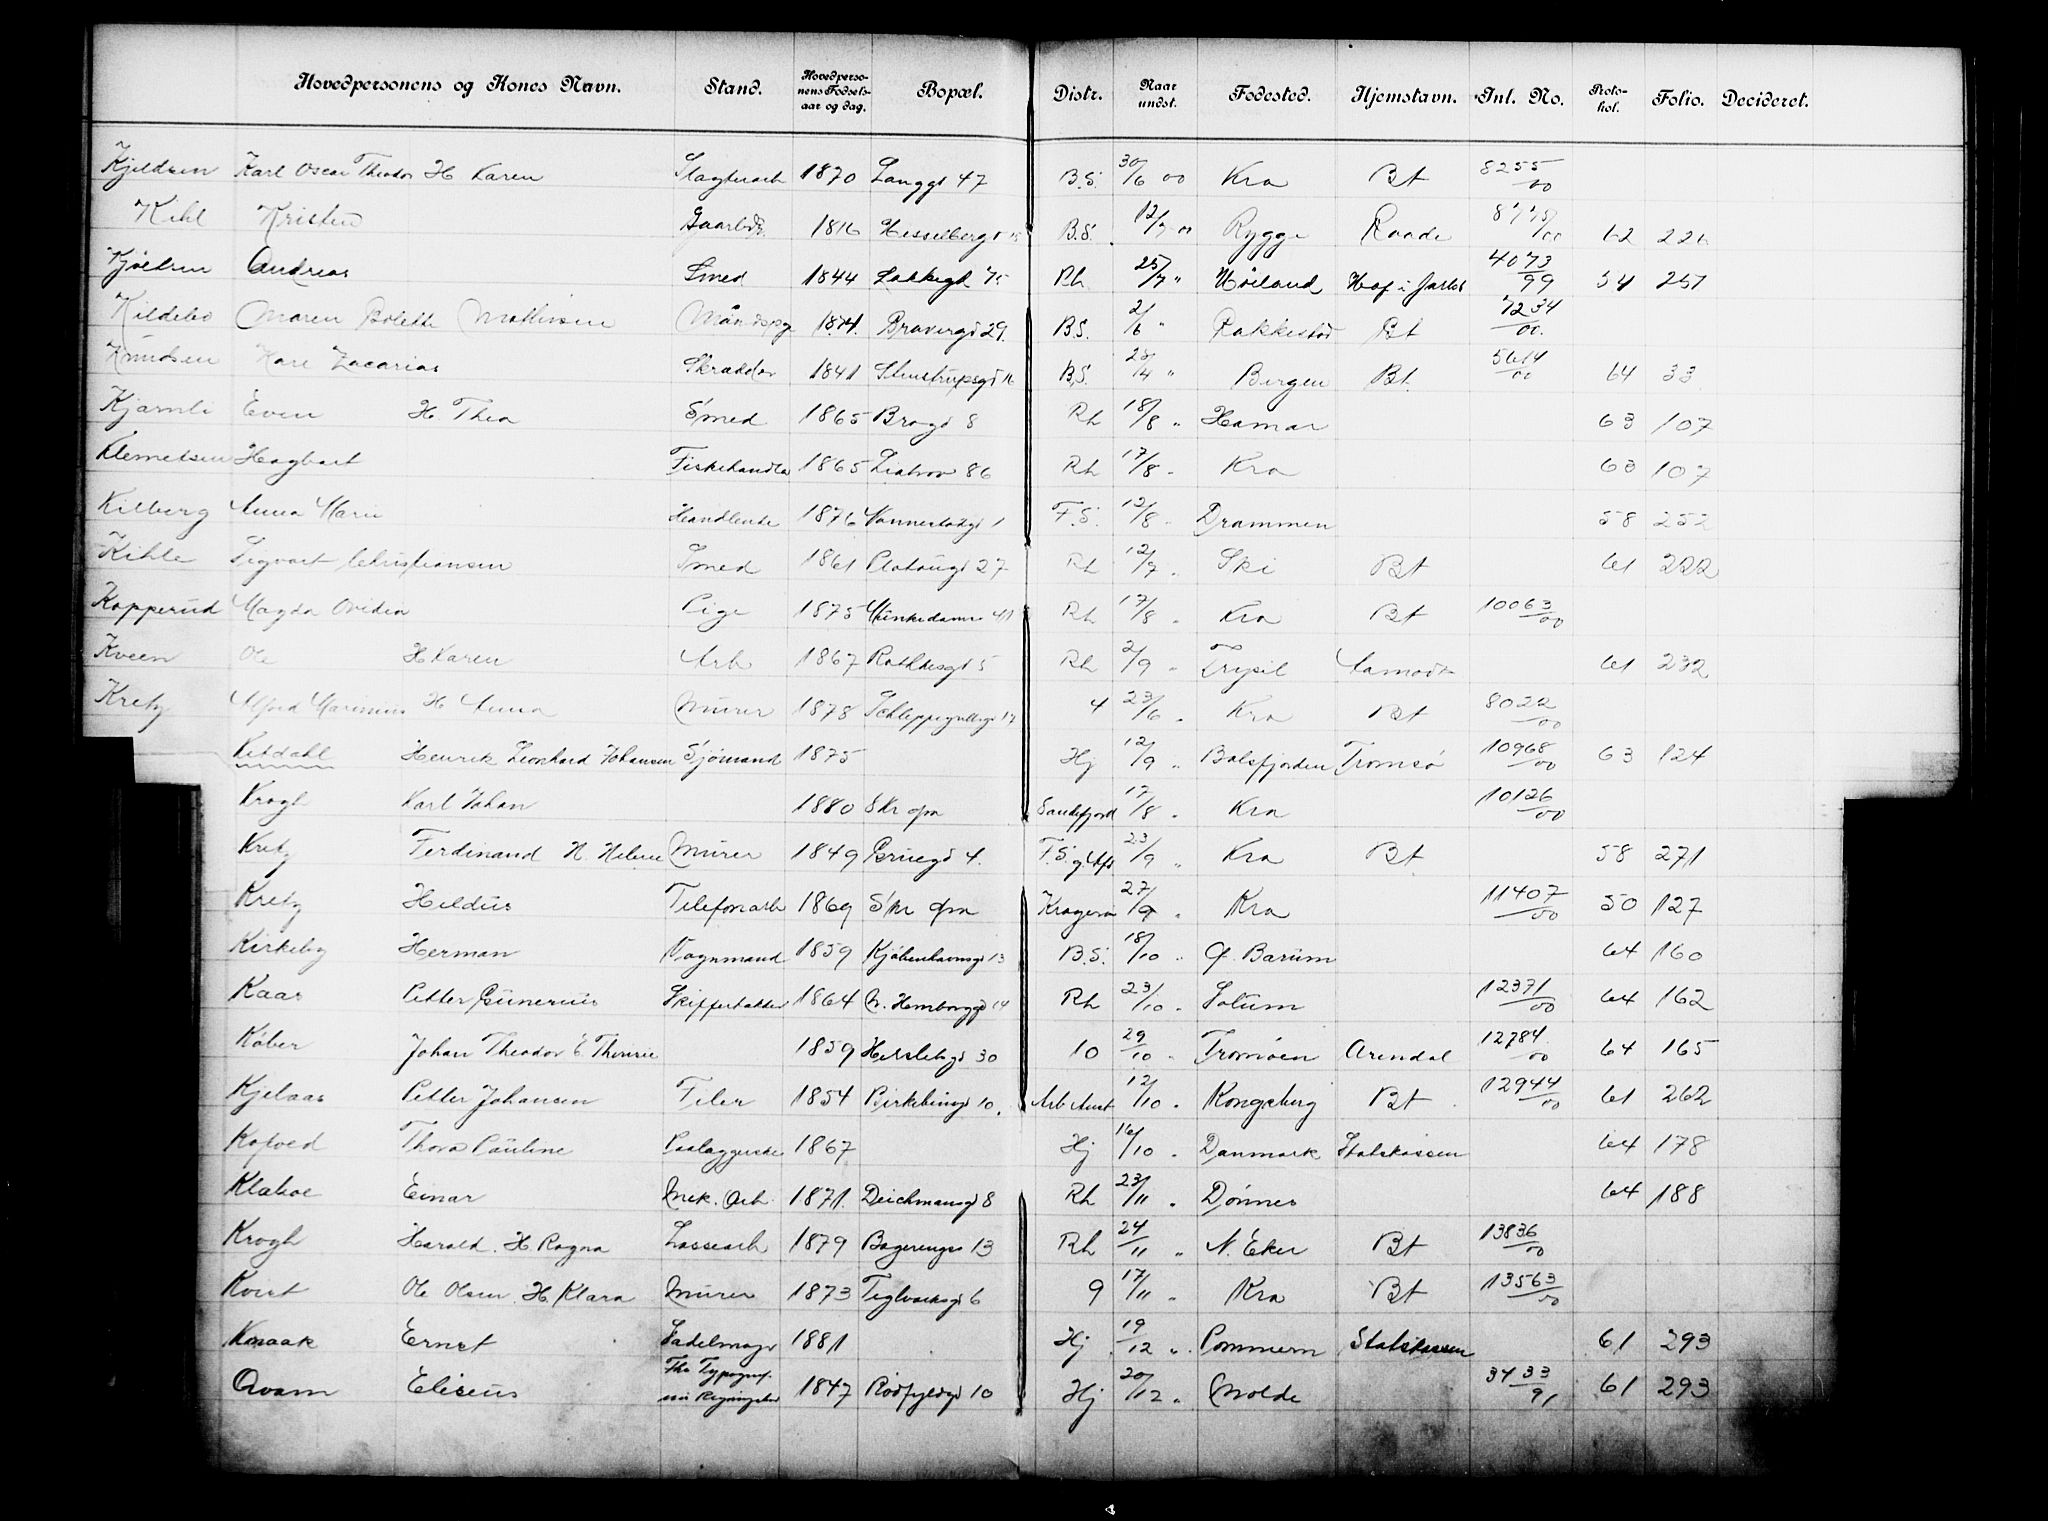 Hovedpersonens og Kones Navn. Stand. Hovedpersonens Fødselsaar og dag. Bopæl. Distr. Naar undst. Fødested. Hjemstavn. Inl. No. Protokol. Folio. Decideret.
Kjeldsen Karl Oscar Theodor H Karen Slagterarb 1870 Langgd 47 B.S. 30/6 00 Kra Bt 8255/00
Kihl Kristen Gaarbr 1816 Hesselbergd 15 B.S. 12/7 00 Rygge Raade 8775/00 62 226
Kjølsen Andreas Smed 1844 Lakkegd 75 Rh 25/7 " Høiland Hof i Jarls 4073/99 54 257
Kildebo Maren Bolette Mathisen 1874. Bravergd 29. B.S. 2/6 " Rakkestad Bt 7234/00.
Knudsen Hare Zacarias Skrædder 1841 Stenstrupsgd 16 B.S. 28/4 " Bergen Bt. 5614/00 64 33
Kjarnli Even H. Thea Smed 1865 Brogd 8 Rh 18/8 " Hamar 63 107
Klemetsen Hagbart Fiskehandler 1865 86 Rh 17/8 " Kra 63 107
Kilberg Anna Marie Handlende 1876 Vannerstadgd 1 F.S. 12/8 " Drammen 58 252
Kihle Sigvart Christiansen Smed 1861 Platougd 27 Rh 12/7 " Ski Bt 61 222
Kopperud Magda Ovidea Pige 1875 Munkedams 41 Rh 17/8 " Kra Bt 10063/00
Kveen Ole H Karen Arb 1867 Rathkesgd 5 Rh 2/9 " Trysil Aamodt 61 232
Kretz Alfred Marinius H Anna Murer 1878 Schleppegrellsgd 17 4 23/6 " Kra Bt 8022/00
Kildahl Henrik Leonhard Johansen Sjømand 1875 Hj 12/9 " Balsfjorden Tromsø 10968/00 63 124
Krogh Karl Johan 1880 Skr opn Sandefjord 17/8 " Kra 10126/00
Kretz Ferdinand H. Helene Murer 1849 Gruegd 4. F.S. 23/9 " Kra Bt 58 271
Kretz Hildus Telefonarb 1869 Skr opn Kragerø 27/9 " Kra 11407/00 50 127
Kirkeby Herman Vognmand 1859 Kjøbenhavnsgd 13 B.S. 18/10 " Ø. Bærum 64 160
Kaas Petter Gunerius Skipperfatter 1864 N. Hamborggd 14 Rh 23/10 " Solum 12371/00 64 162
Køber Johan Theodor E. Thomine 1859 Helslebygd 30 10 29/10 " Tromøen Arendal 12784./00 64 165
Kjelaas Petter Johansen Filer 1854 Birkelunsd 10. Arb Anst 12/10 " Kongsberg Bt 12944/00 61 262
Kofoed Thora Pauline Paalæggerske 1867 Hj 16/10 " Danmark Statskassen 64 178
Klaboe Einar Mek. Arb. 1871. Deichmansgd 8 Rh 23/11 " Dønnes 64 188
Krogh Harald. H. Ragna Lossearb 1879 Bøgerengn 13 Rh 24/11 " N. Eker Bt 13836/00
Kvist Ole Olsen. H. Klara Murer 1873 Teglverksgd 6 9 17/11 " Kra Bt 13563/00
Knaak Ernst Sadelmager 1881 Hj 19/12 " Pommern Statskassen 61 293
Qvam Eliseus Fhv Typograf 1847 Rødfyldgd 10 Hj 20/12 " Molde 3433/91 61 293